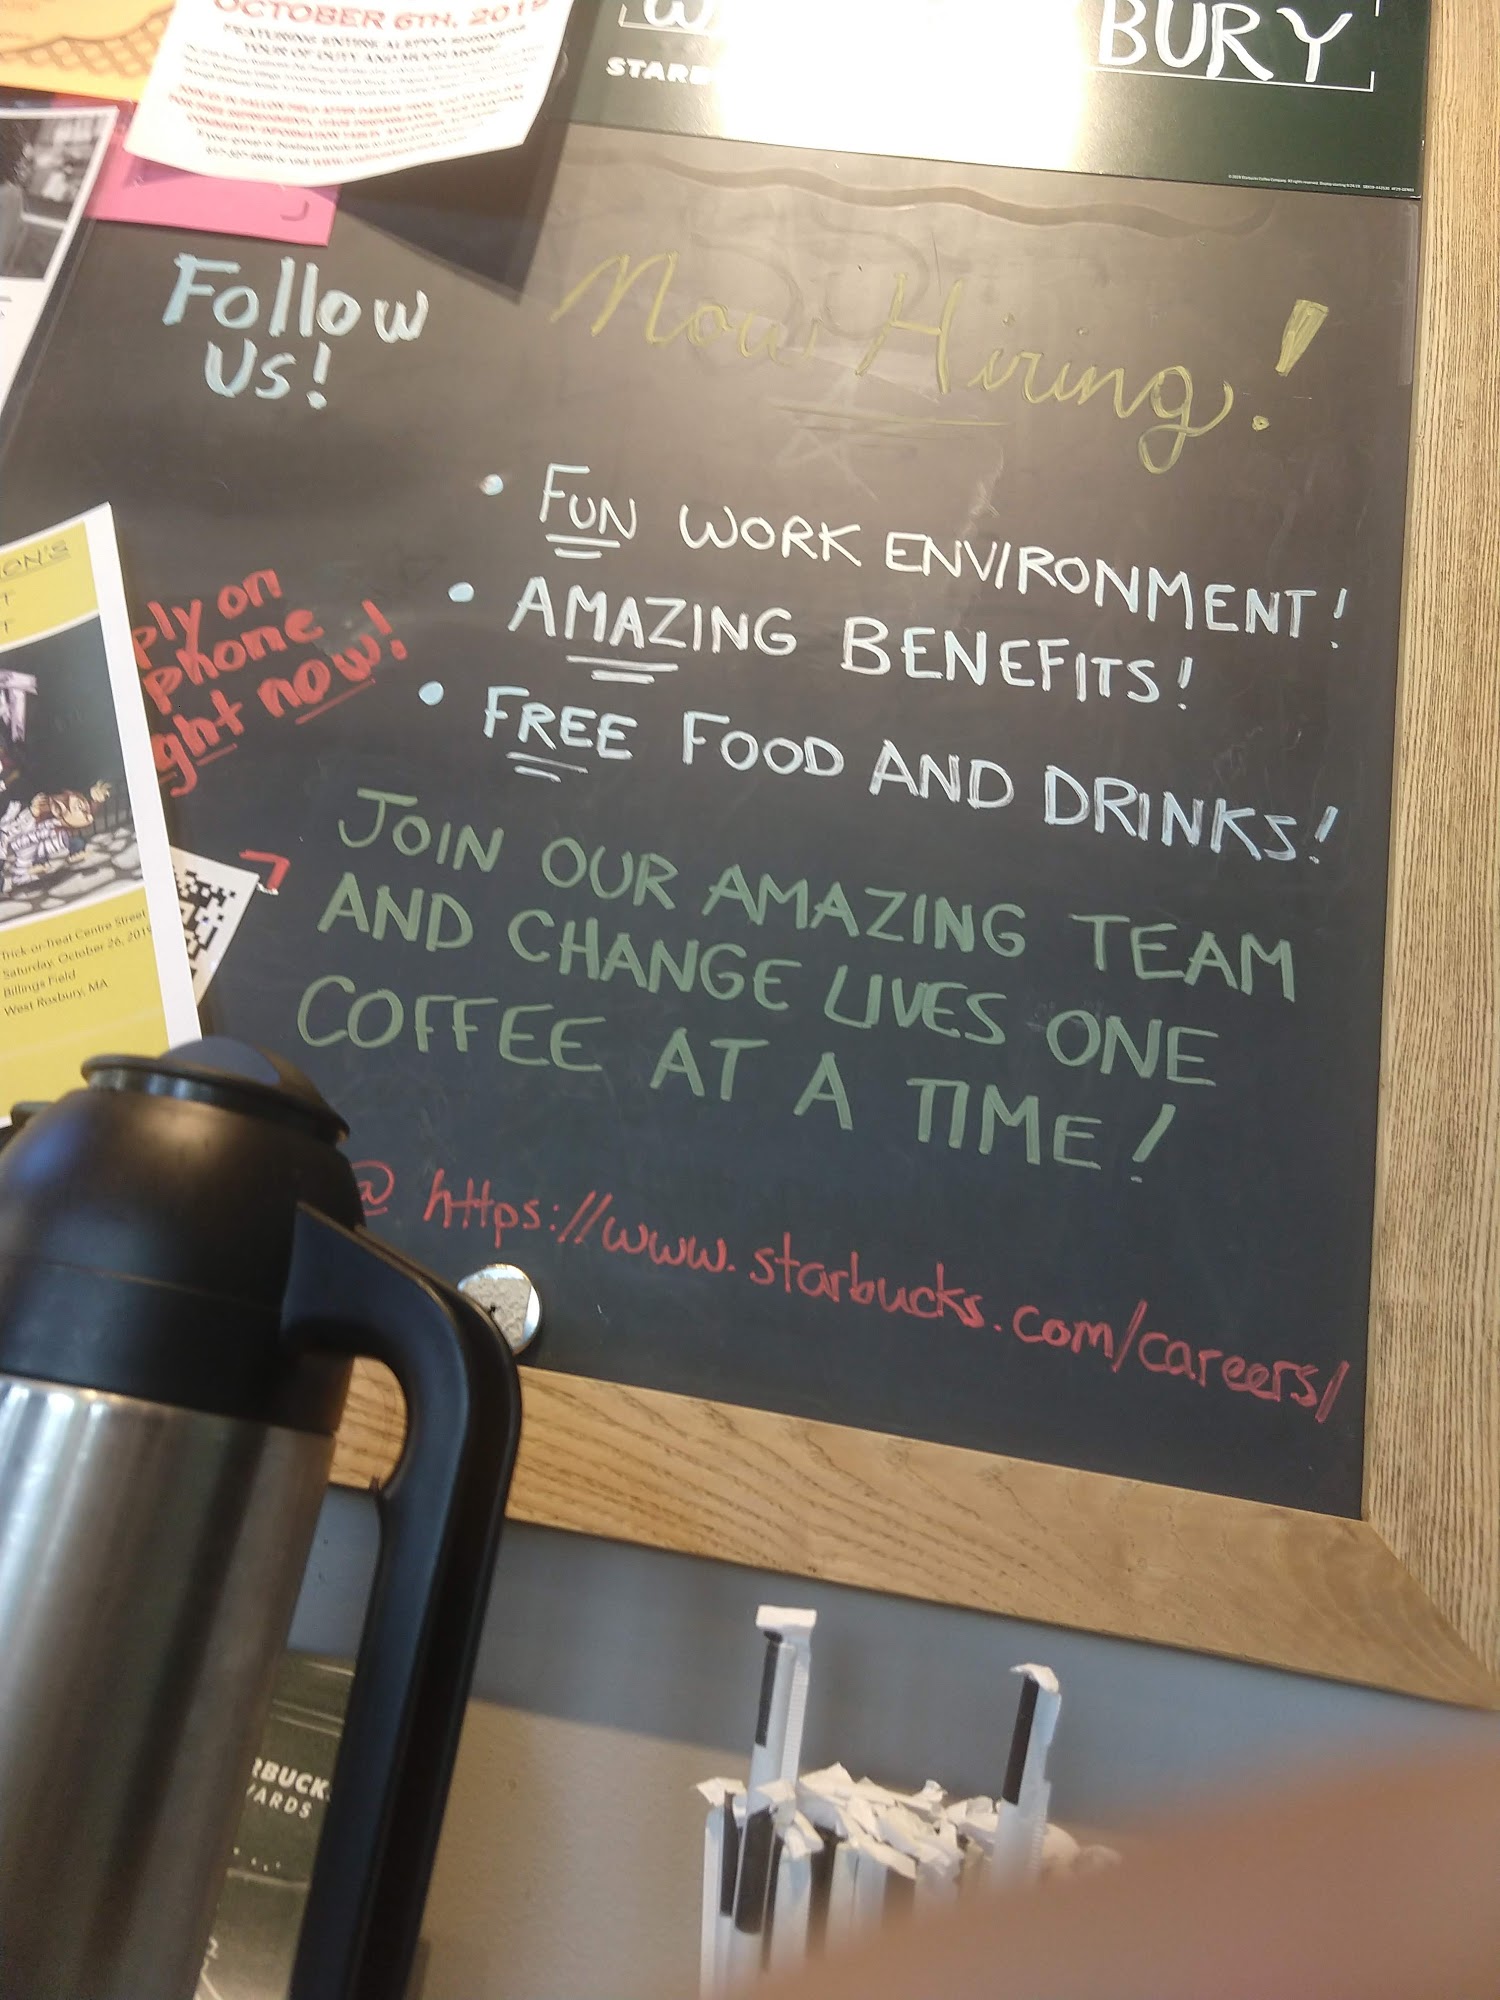 OCTOBER 6TH, 2019
TOUR OF DUTY AND MUCH MORE!
BURY
STARB
Follow
Us!
Now Hiring!
• FUN WORK ENVIRONMENT!
• AMAZING BENEFITS!
• FREE FOOD AND DRINKS!
ply on
phone
ght now!
JOIN OUR AMAZING TEAM
AND CHANGE LIVES ONE
COFFEE AT A TIME!
@ https://www.starbucks.com/careers/
ON'S
T
T
Trick-or-Treat Centre Street
Saturday, October 26, 2019
Billings Field
West Roxbury, MA
RBUCK
ARDS